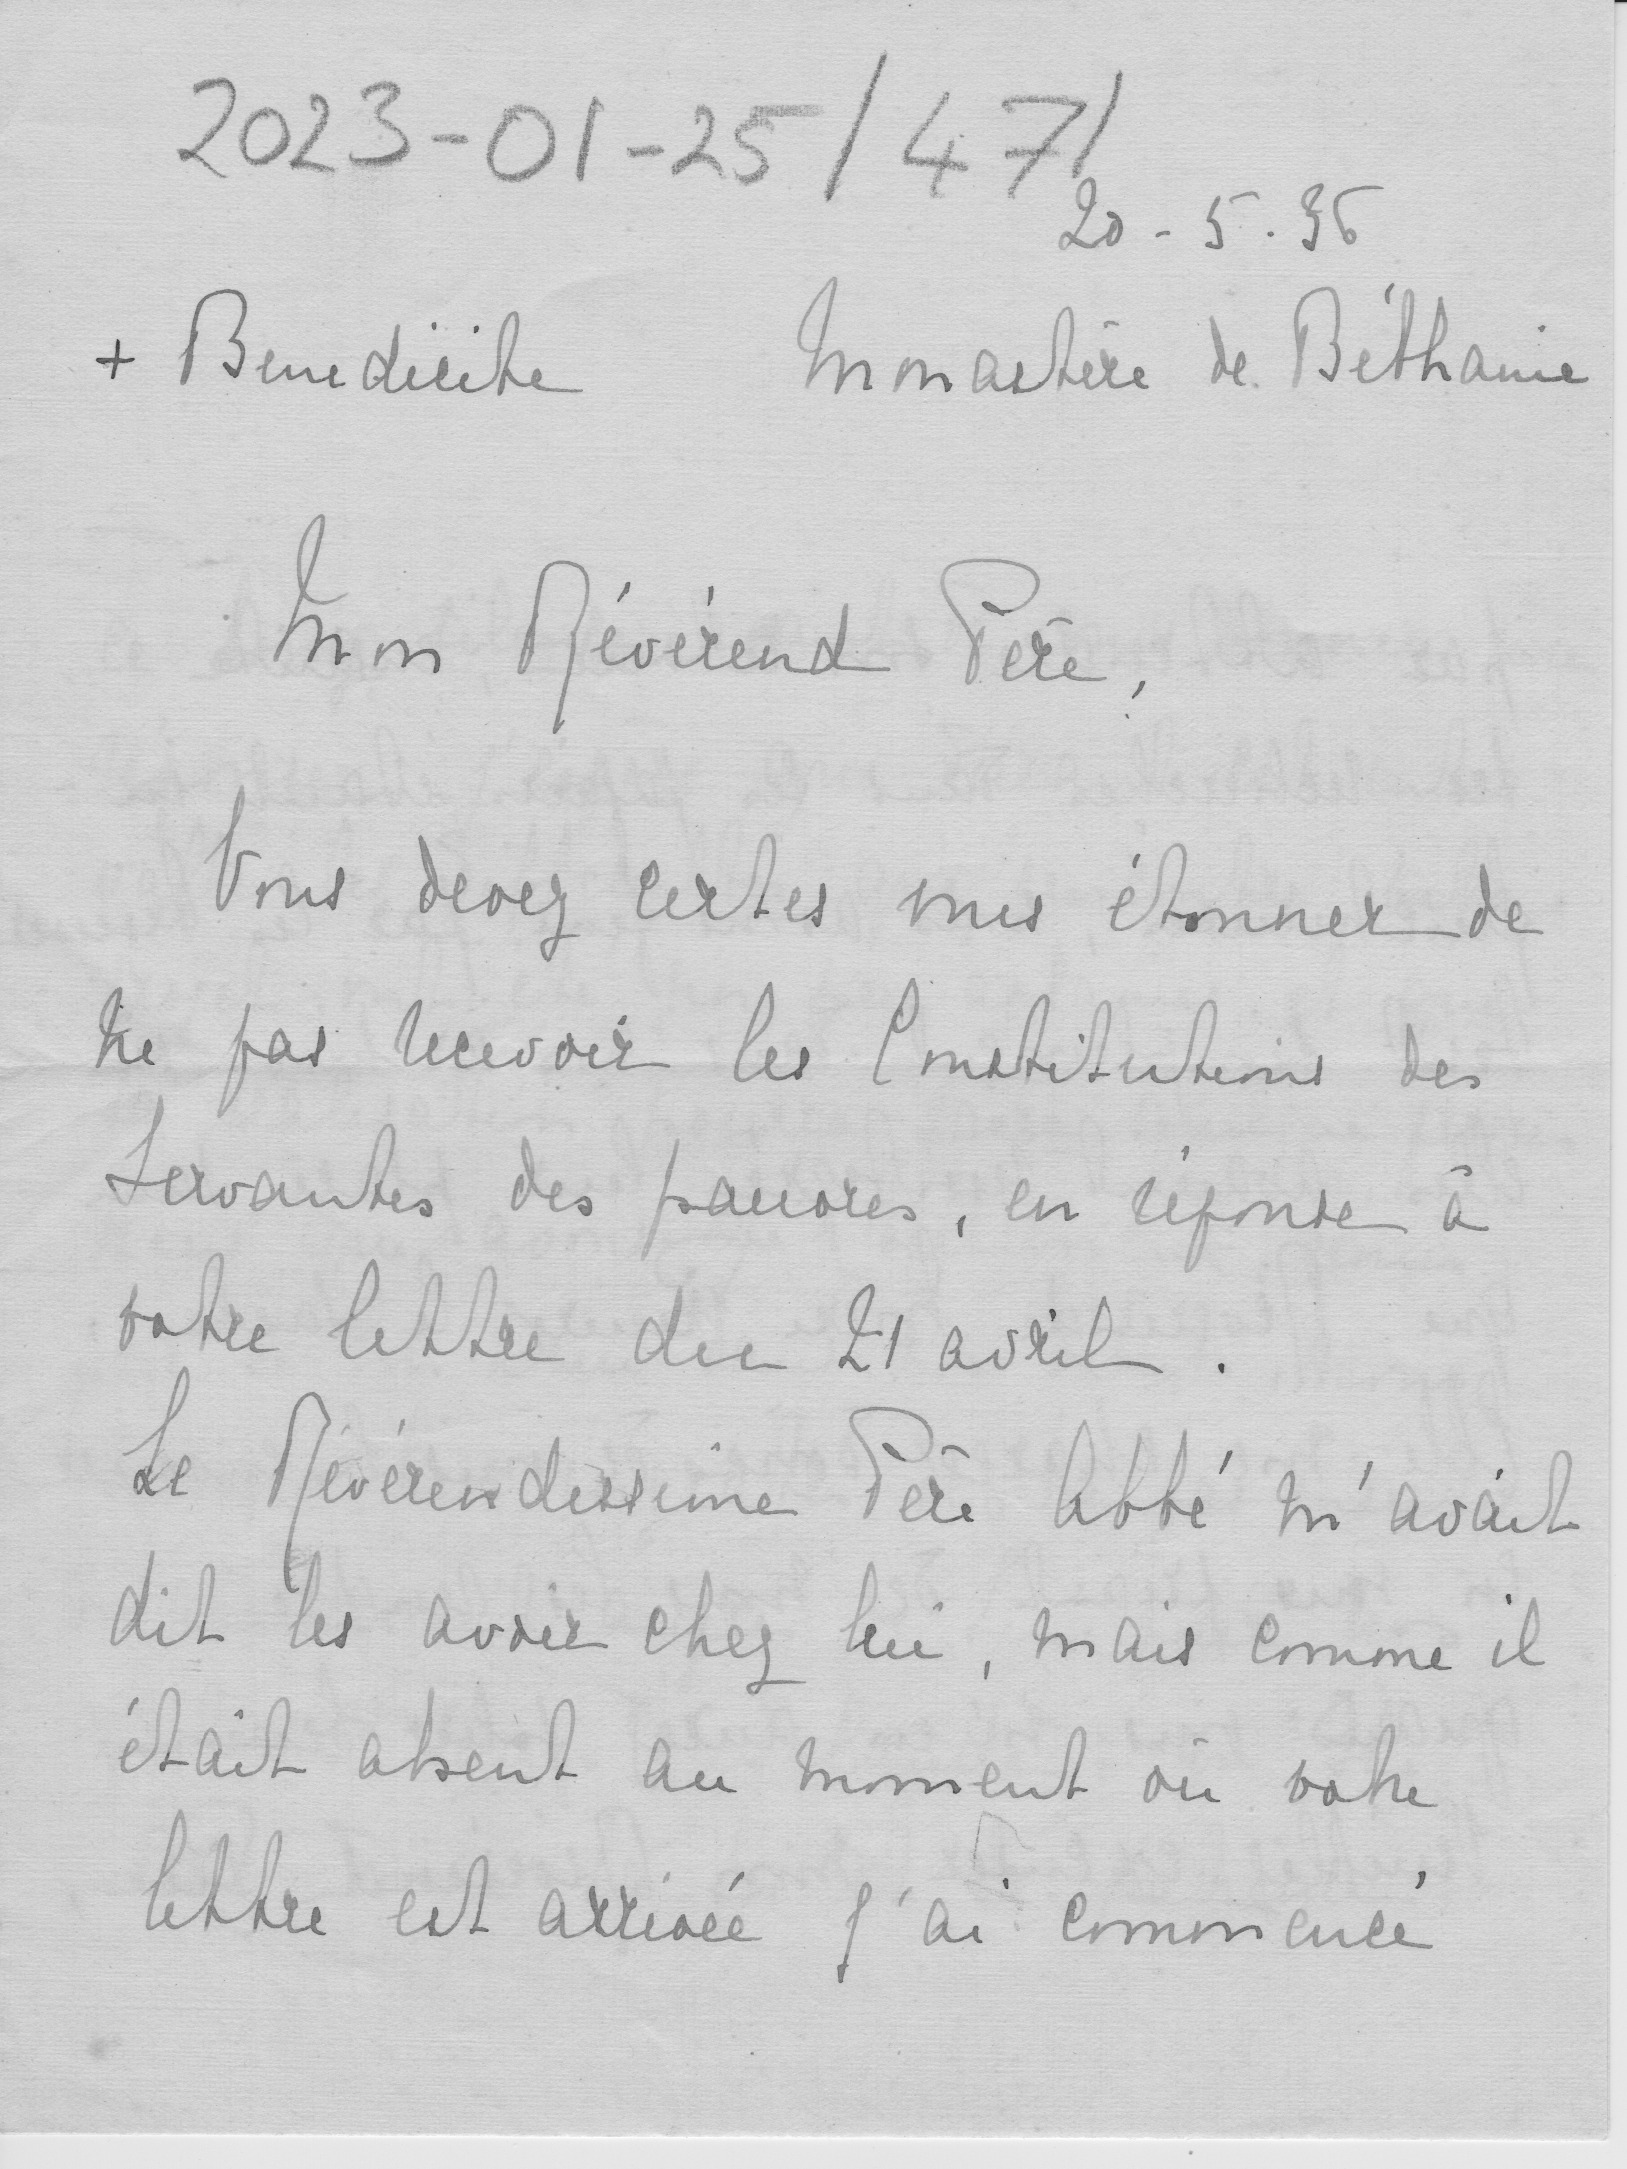 2023-01-25/471
20-5.36
+ Benedicite Monastère de Béthanie
Mon Révérend Père,
Vous devez certes vous étonner de
ne pas recevoir les Constitutions des
Servantes des pauvres, en réponse à
votre lettre du 21 avril.
Le Révérendissime Père Abbé m'avait
dit les avoir chez lui, mais comme il
était absent au moment où votre
lettre est arrivée j'ai commencé